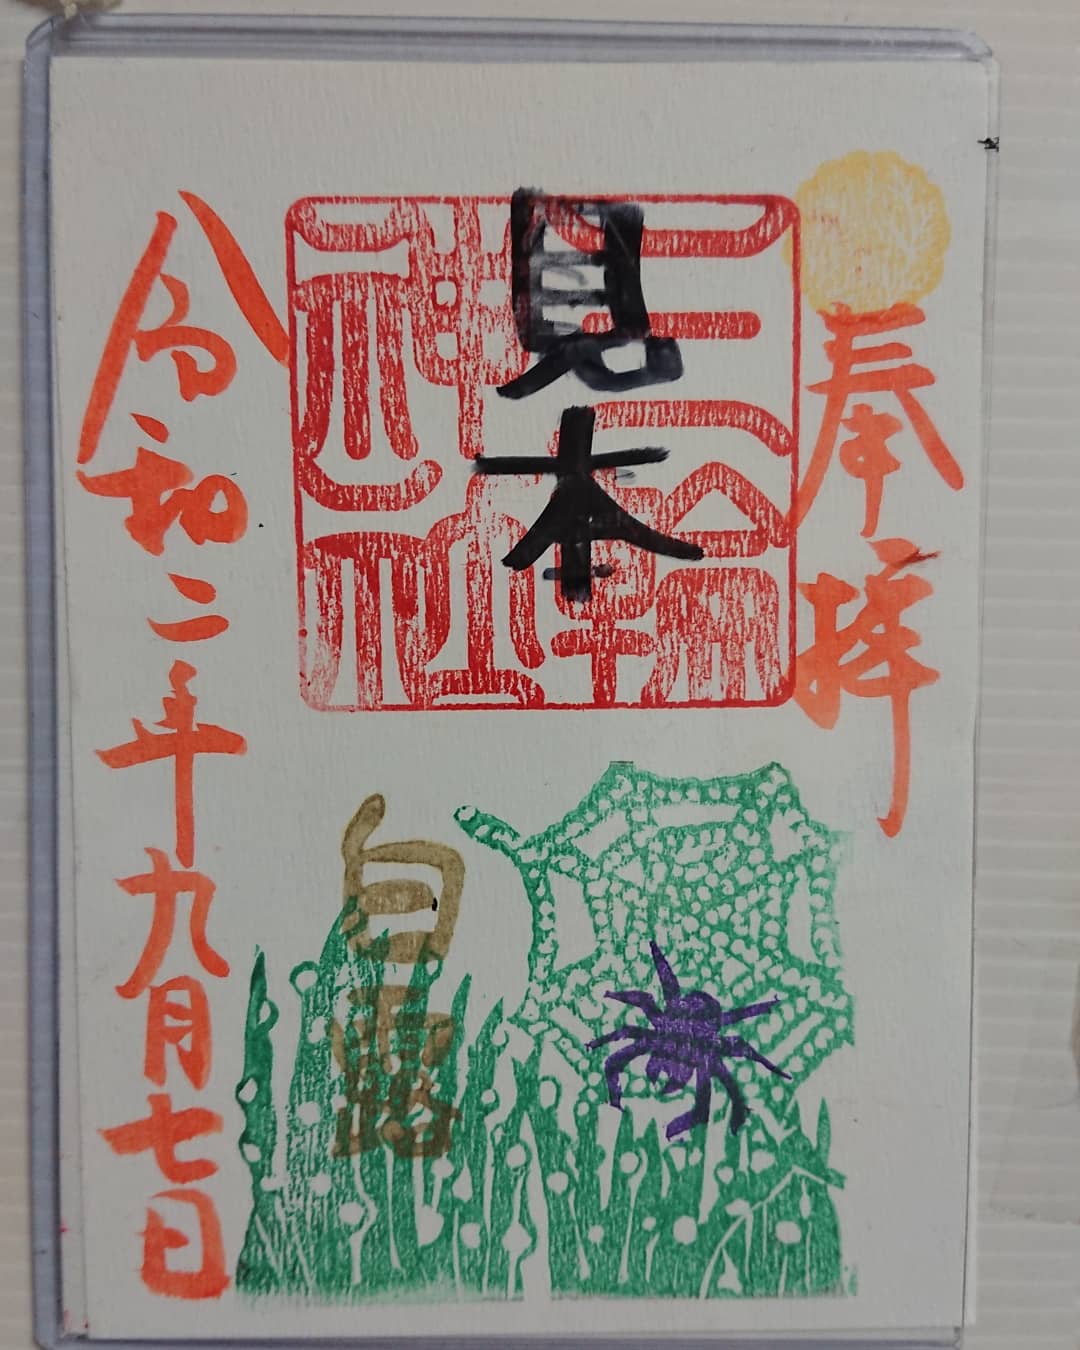 奉拝
三輪
神社
見本
白露
令和二年九月七日